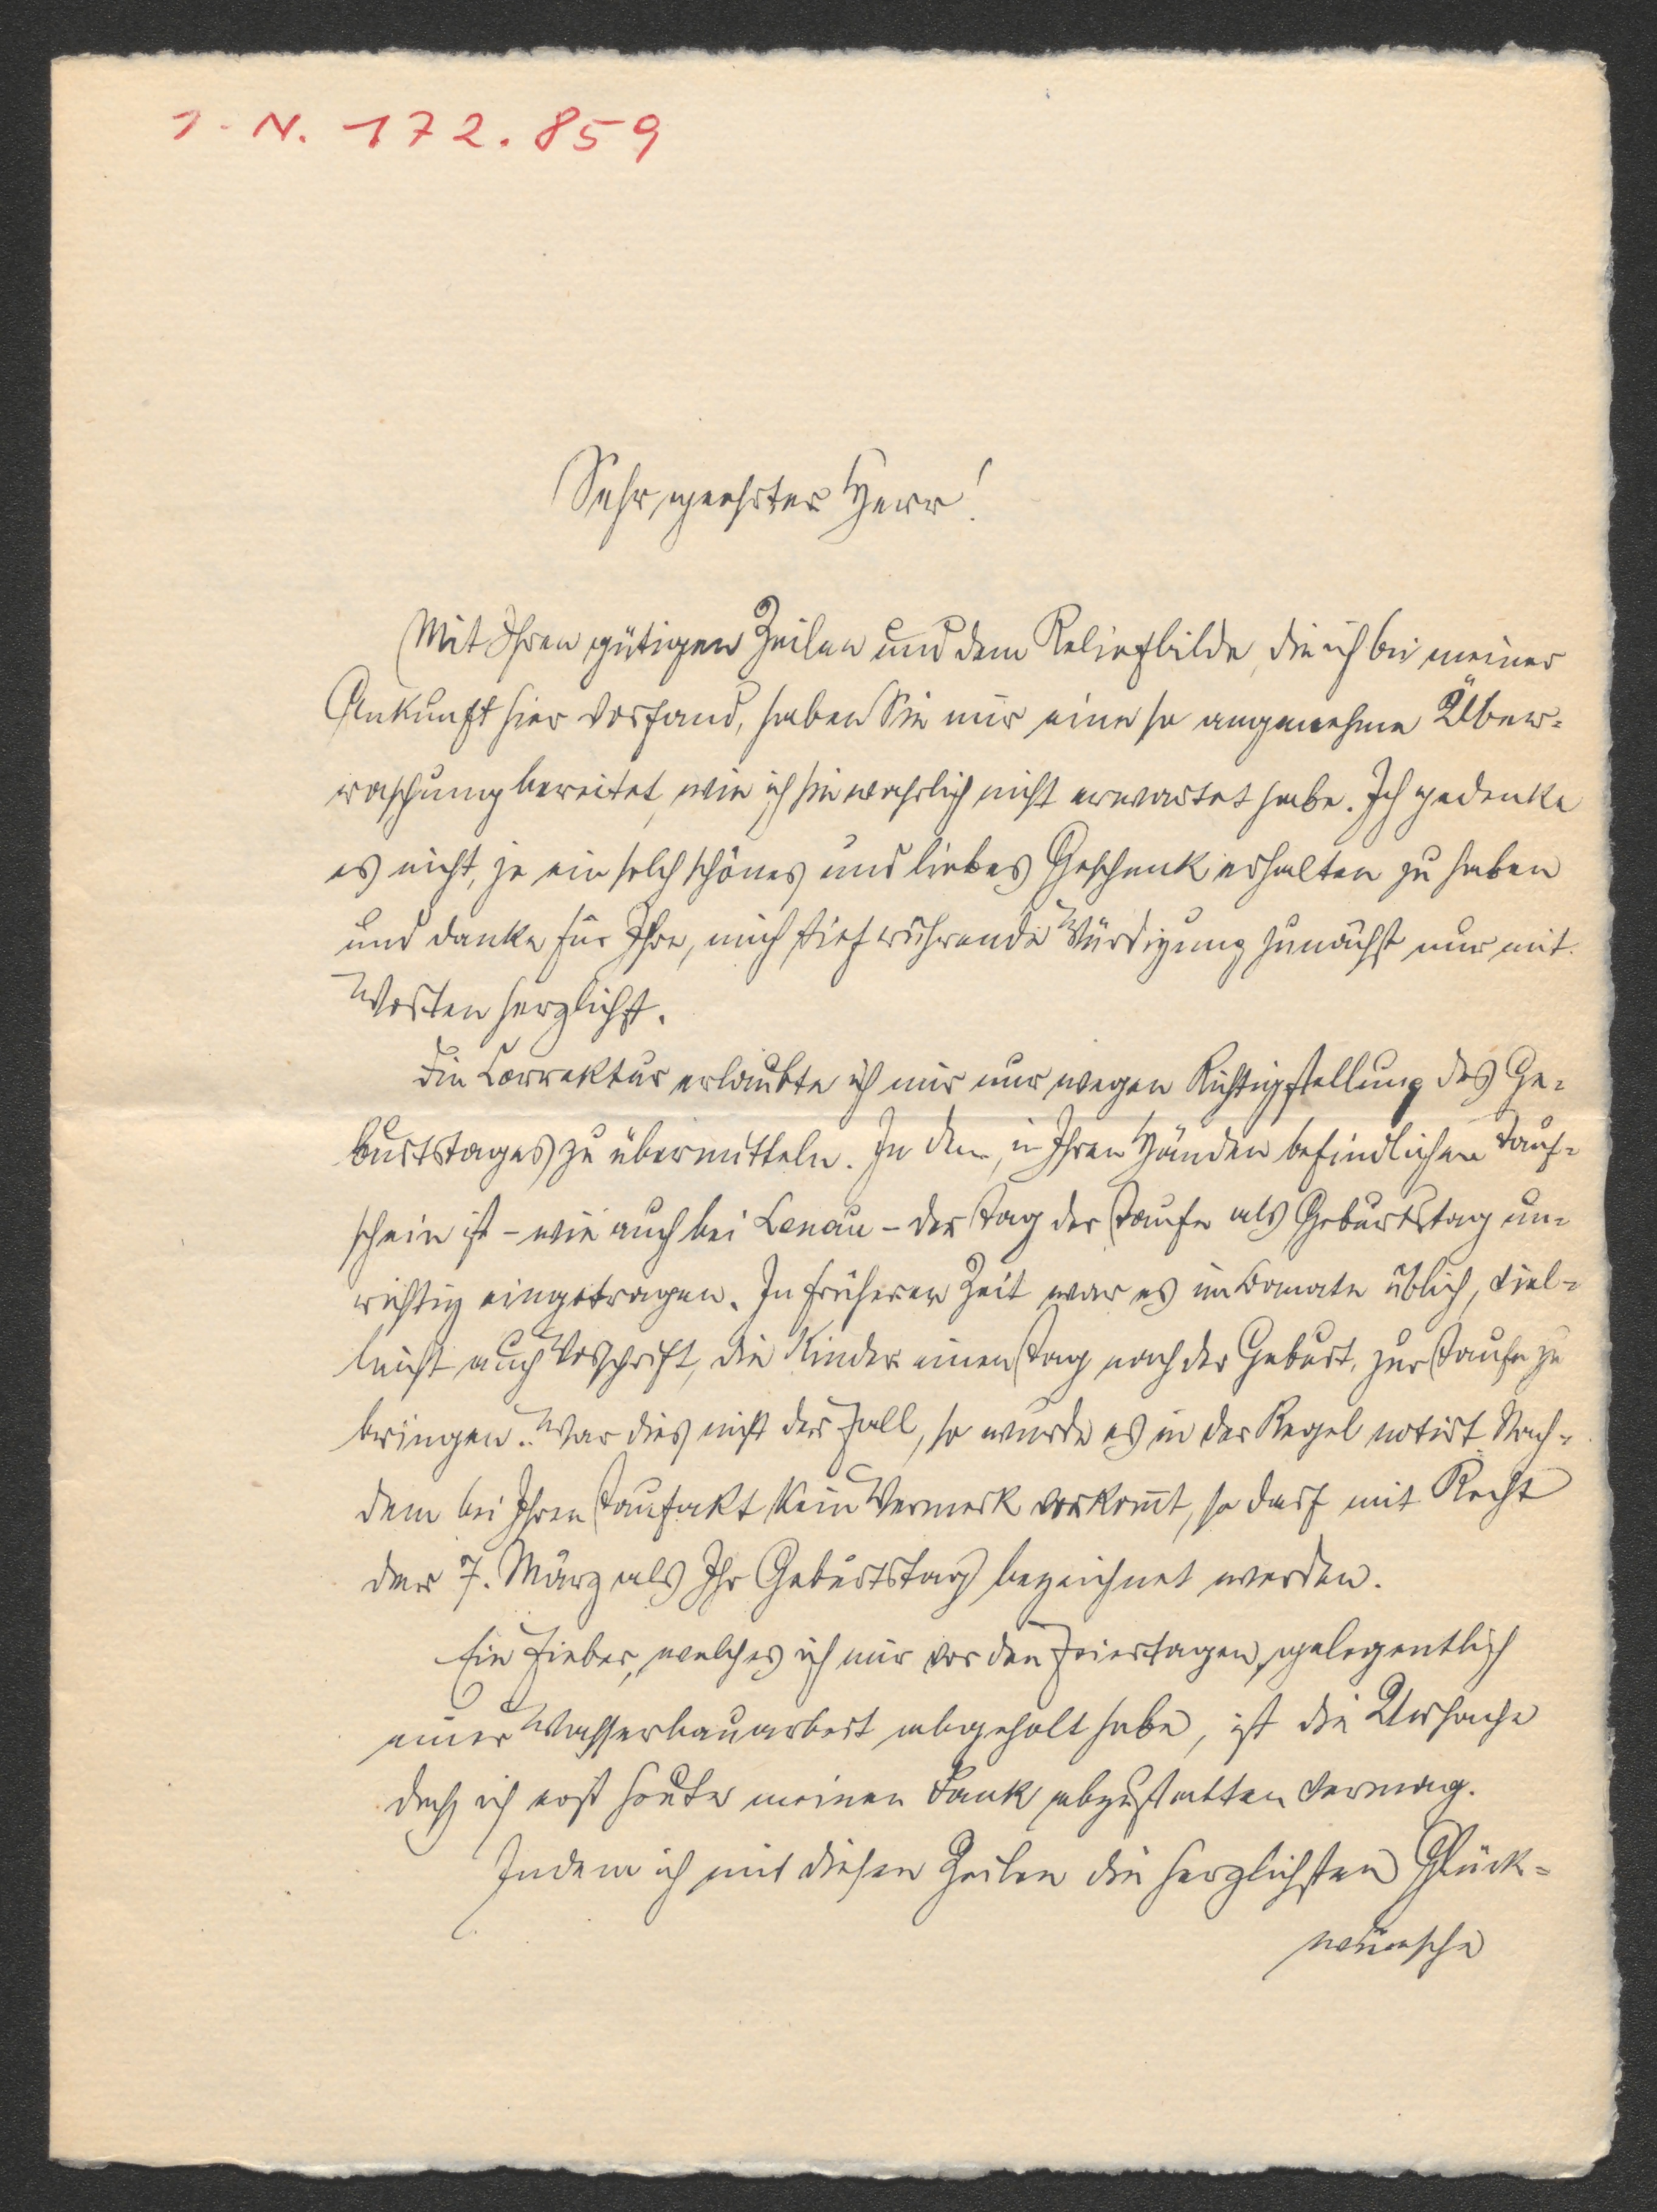 I. N. 172.859
Sehr geehrter Herr!
Mit Ihren gütigen Zeilen und dem Reliefbilde, die ich bei meiner
Ankunft hier vorfand, haben Sie mir eine so angenehme Über-
raschung bereitet, wie ich sie wahrlich nicht erwartet habe. Ich gedenke
es nicht, je ein solch schönes und liebes Geschenk erhalten zu haben
und danke für Ihre, mich tief rührende Würdigung zunächst nur mit
Worten herzlichst.
Die Correktur erlaubte ich mir nur wegen Richtigstellung des Ge-
burtstages zu übermitteln. In dem, in Ihren Händen befindlichen Tauf-
schein ist – wie auch bei Lenau – der Tag der Taufe als Geburtstag un-
richtig eingetragen. In früherer Zeit war es im Banate üblich, viel-
leicht auch Vorschrift, die Kinder einen Tag nach der Geburt, zur Taufe zu
bringen. War dies nicht der Fall, so wurde es in der Regel notirt. Nach-
dem bei Ihren Taufakt kein Vermerk vorkom̅t, so darf mit Recht
der 7. März als Ihr Geburtstag bezeichnet werden.
Ein Fieber, welches ich mir vor den Feiertagen, gelegentlich
einer Wasserbauarbeit abgeholt habe, ist die Ursache
daß ich erst heute meinen Dank abzustatten vermag.
Indem ich mit diesen Zeilen die herzlichsten Glück-
wünsche